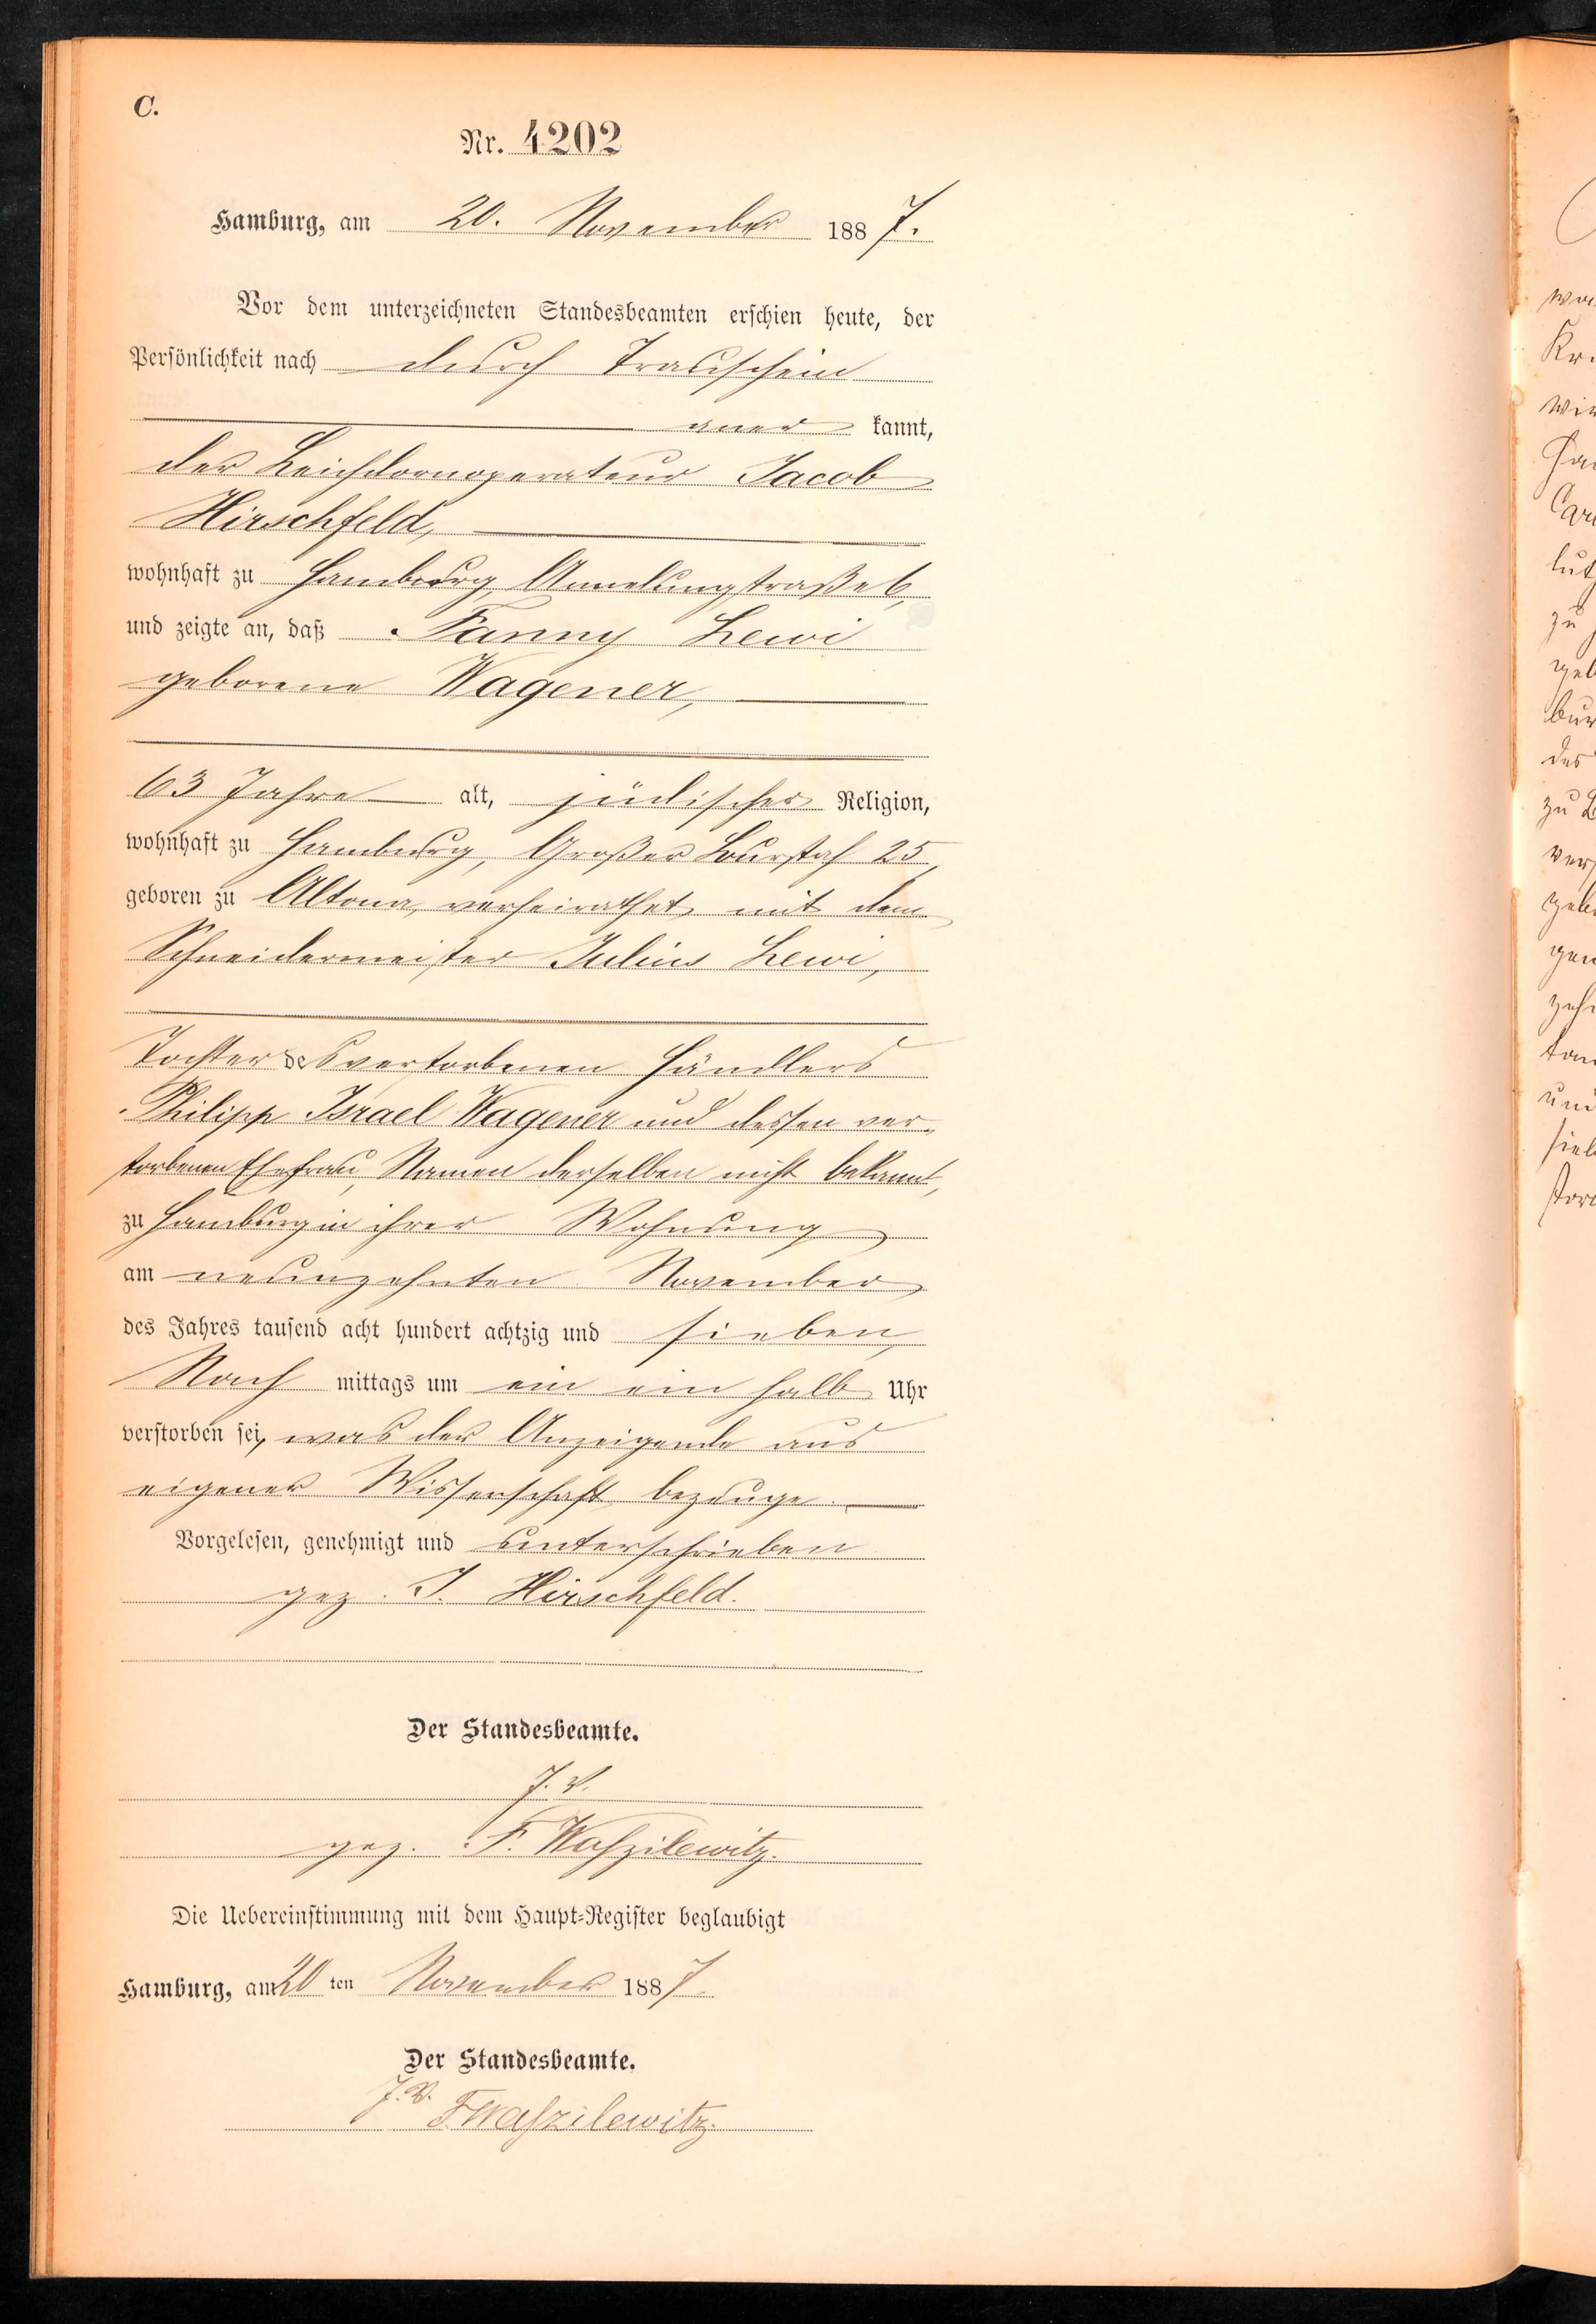 C.
Nr. 4202
Hamburg, am 20. November 1887.
Vor dem unterzeichneten Standesbeamten erschien heute, der
Persönlichkeit nach durch Trauschein
aner kannt,
der Leichdornoperateur Jacob
Hirschfeld,
wohnhaft zu Hamburg, Amelungstraße 6,
und zeigte an, daß Fanny Lewi
geborene Wagener,
63 Jahre alt, jüdischer Religion,
wohnhaft zu Hamburg, Großer Burstah 25,
geboren zu Altona, verheirathet mit dem
Schneidermeister Julius Lewi,
Tochter des verstorbenen Händlers
Philipp Israel Wagener und dessen ver-
storbenen Ehefrau, Namen derselben nicht bekannt,
zu Hamburg in ihrer Wohnung
am neunzehnten November
des Jahres tausend acht hundert achtzig und sieben,
Nach mittags um ein ein halb Uhr
verstorben sei, was der Anzeigende aus
eigener Wissenschaft bezeuge.
Vorgelesen, genehmigt und unterschrieben
gez. J. Hirschfeld.
Der Standesbeamte.
J. V.
gez. F. Waszilewitz.
Die Uebereinstimmung mit dem Haupt-Register beglaubigt
Hamburg, am 20 ten November 1887.
Der Standesbeamte.
J. V.
F. Waszilewitz.